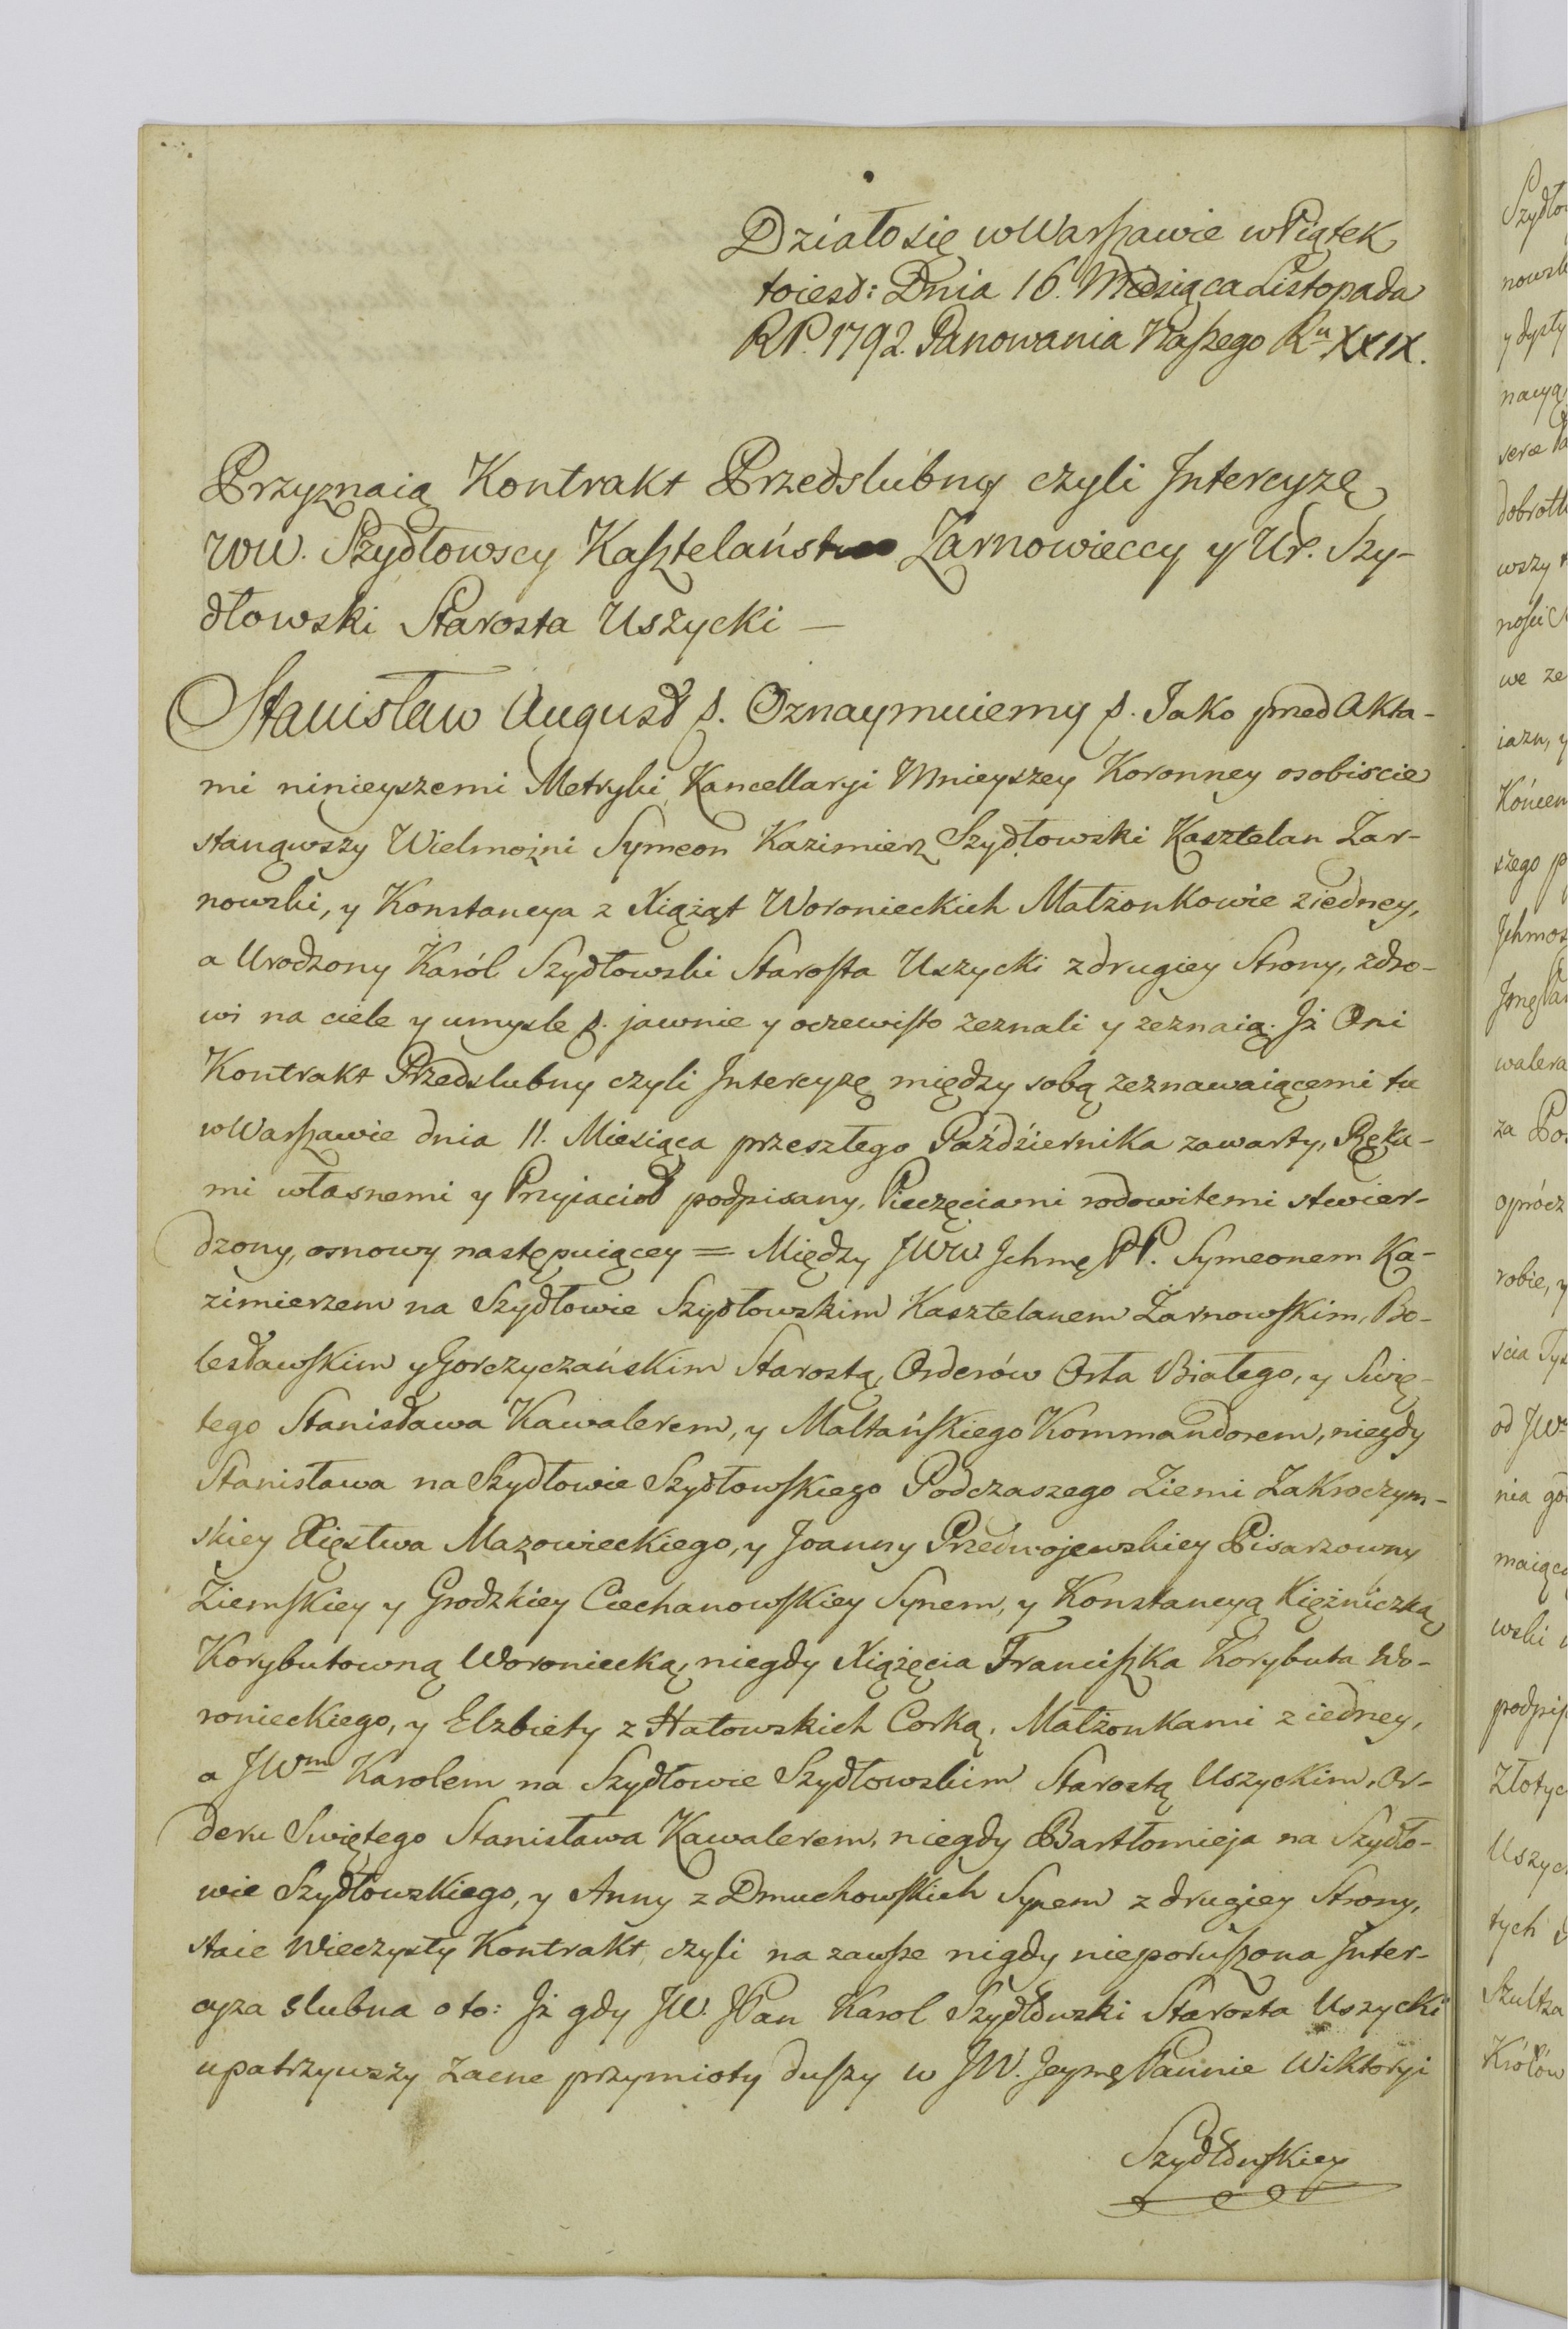 Działo się w Warszawie w Piątek
toiest: Dnia 16. Miesiąca Listopada
RP. 1792. Panowania Naszego Ru XXIX.
Przyznaią Kontrakt Przedslubny czyli Intercyzę
WW. Szydłowscy Kasztelaństwo Zarnowieccy y Ur. Szy-
dłowski Starosta Uszycki —
Stanisław August p. Oznaymuiemy p. Jako przed Akta-
mi ninieyszemi Metryki Kancellaryi Mnieyszey Koronney osobiscie
stanąwszy Wielmożni Symeon Kazimierz Szydłowski Kasztelan Żar-
nowski, y Konstancya z Xiążąt Woronieckich Małżonkowie ziedney,
a Urodzony Karól Szydłowski Starosta Uszycki z drugiey Strony, zdro-
wi na ciele y umysle p. jawnie y oczewisto zeznali y zeznaią. Jż Oni
Kontrakt Przedslubny czyli Intercyzę między sobą zeznawaiącemi tu
w Warszawie dnia 11. Miesiąca przeszłego Października zawarty, Ręka-
mi własnemi y Przyiacioł podpisany, Pieczęciami rodowitemi stwier-
dzony, osnowy następuiącey = Między JWW Jchmę PP. Symeonem Ka-
zimierzem na Szydłowie Szydłowskim Kasztelanem Żarnowskim, Bo-
lesławskim y Gorczyczańskim Starostą, Orderów Orła Białego, y Swię-
tego Stanisława Kawalerem, y Maltańskiego Kommandorem, niegdy
Stanisława na Szydłowie Szydłowskiego Podczaszego Ziemi Zakroczym-
skiey Xięstwa Mazowieckiego, y Joanny Przedwojewskiey Pisarzowny
Ziemskiey y Grodzkiey Ciechanowskiey Synem, y Konstancyą Xiężniczką
Korybutowną Woroniecką, niegdy Xiążęcia Franciszka Korybuta Wo-
ronieckiego, y Elzbiety z Hałowskich Corką, Małżonkami ziedney,
a JWm Karolem na Szydłowie Szydłowskim Starostą Uszyckim, Or-
deru Swiętego Stanisława Kawalerem, niegdy Bartłomieja na Szydło-
wie Szydłowskiego, y Anny z Dmuchowskich Synem z drugiey Strony,
staie Wieczysty Kontrakt czyli na zawsze nigdy nieporuszona Inter-
cyza slubna o to: Jż gdy JW. JPan Karol Szydłowski Starosta Uszycki
upatrzywszy zacne przymioty duszy w JW. Jeymę Pannie Wiktoryi
Szydłowskiey